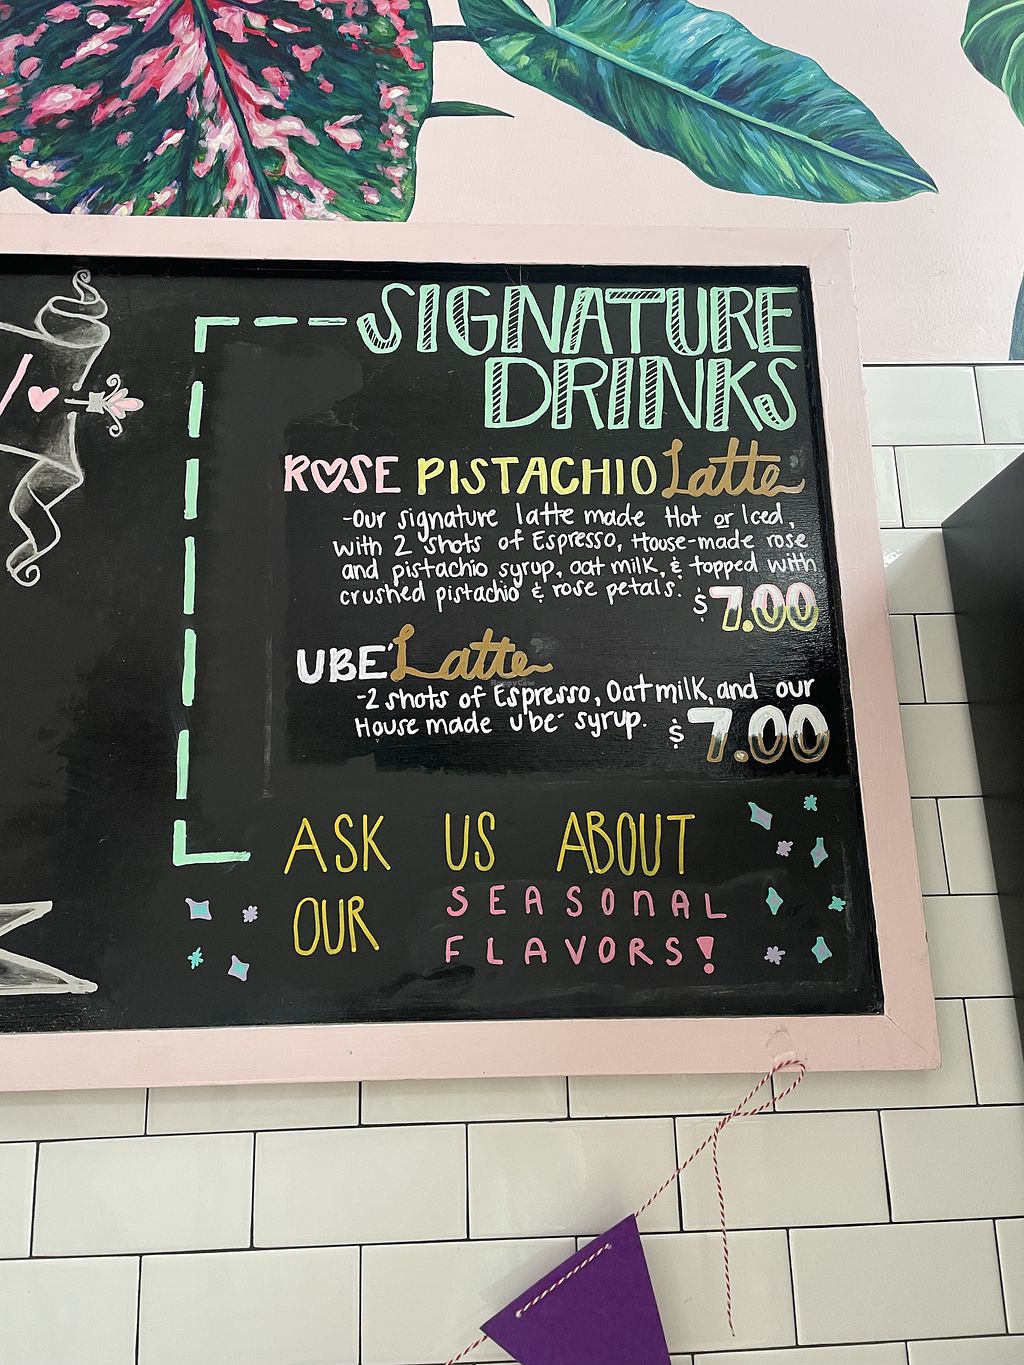 SIGNATURE
DRINKS
ROSE PISTACHIO Latte
-Our signature latte made Hot or Iced,
with 2 shots of Espresso, House-made rose
and pistachio syrup, oat milk, & topped with
crushed pistachio & rose petals. $7.00
UBE' Latte
-2 shots of Espresso, Oatmilk, and our
House made ube' syrup. $7.00
ASK US ABOUT
OUR SEASONAL
FLAVORS!
HappyCow